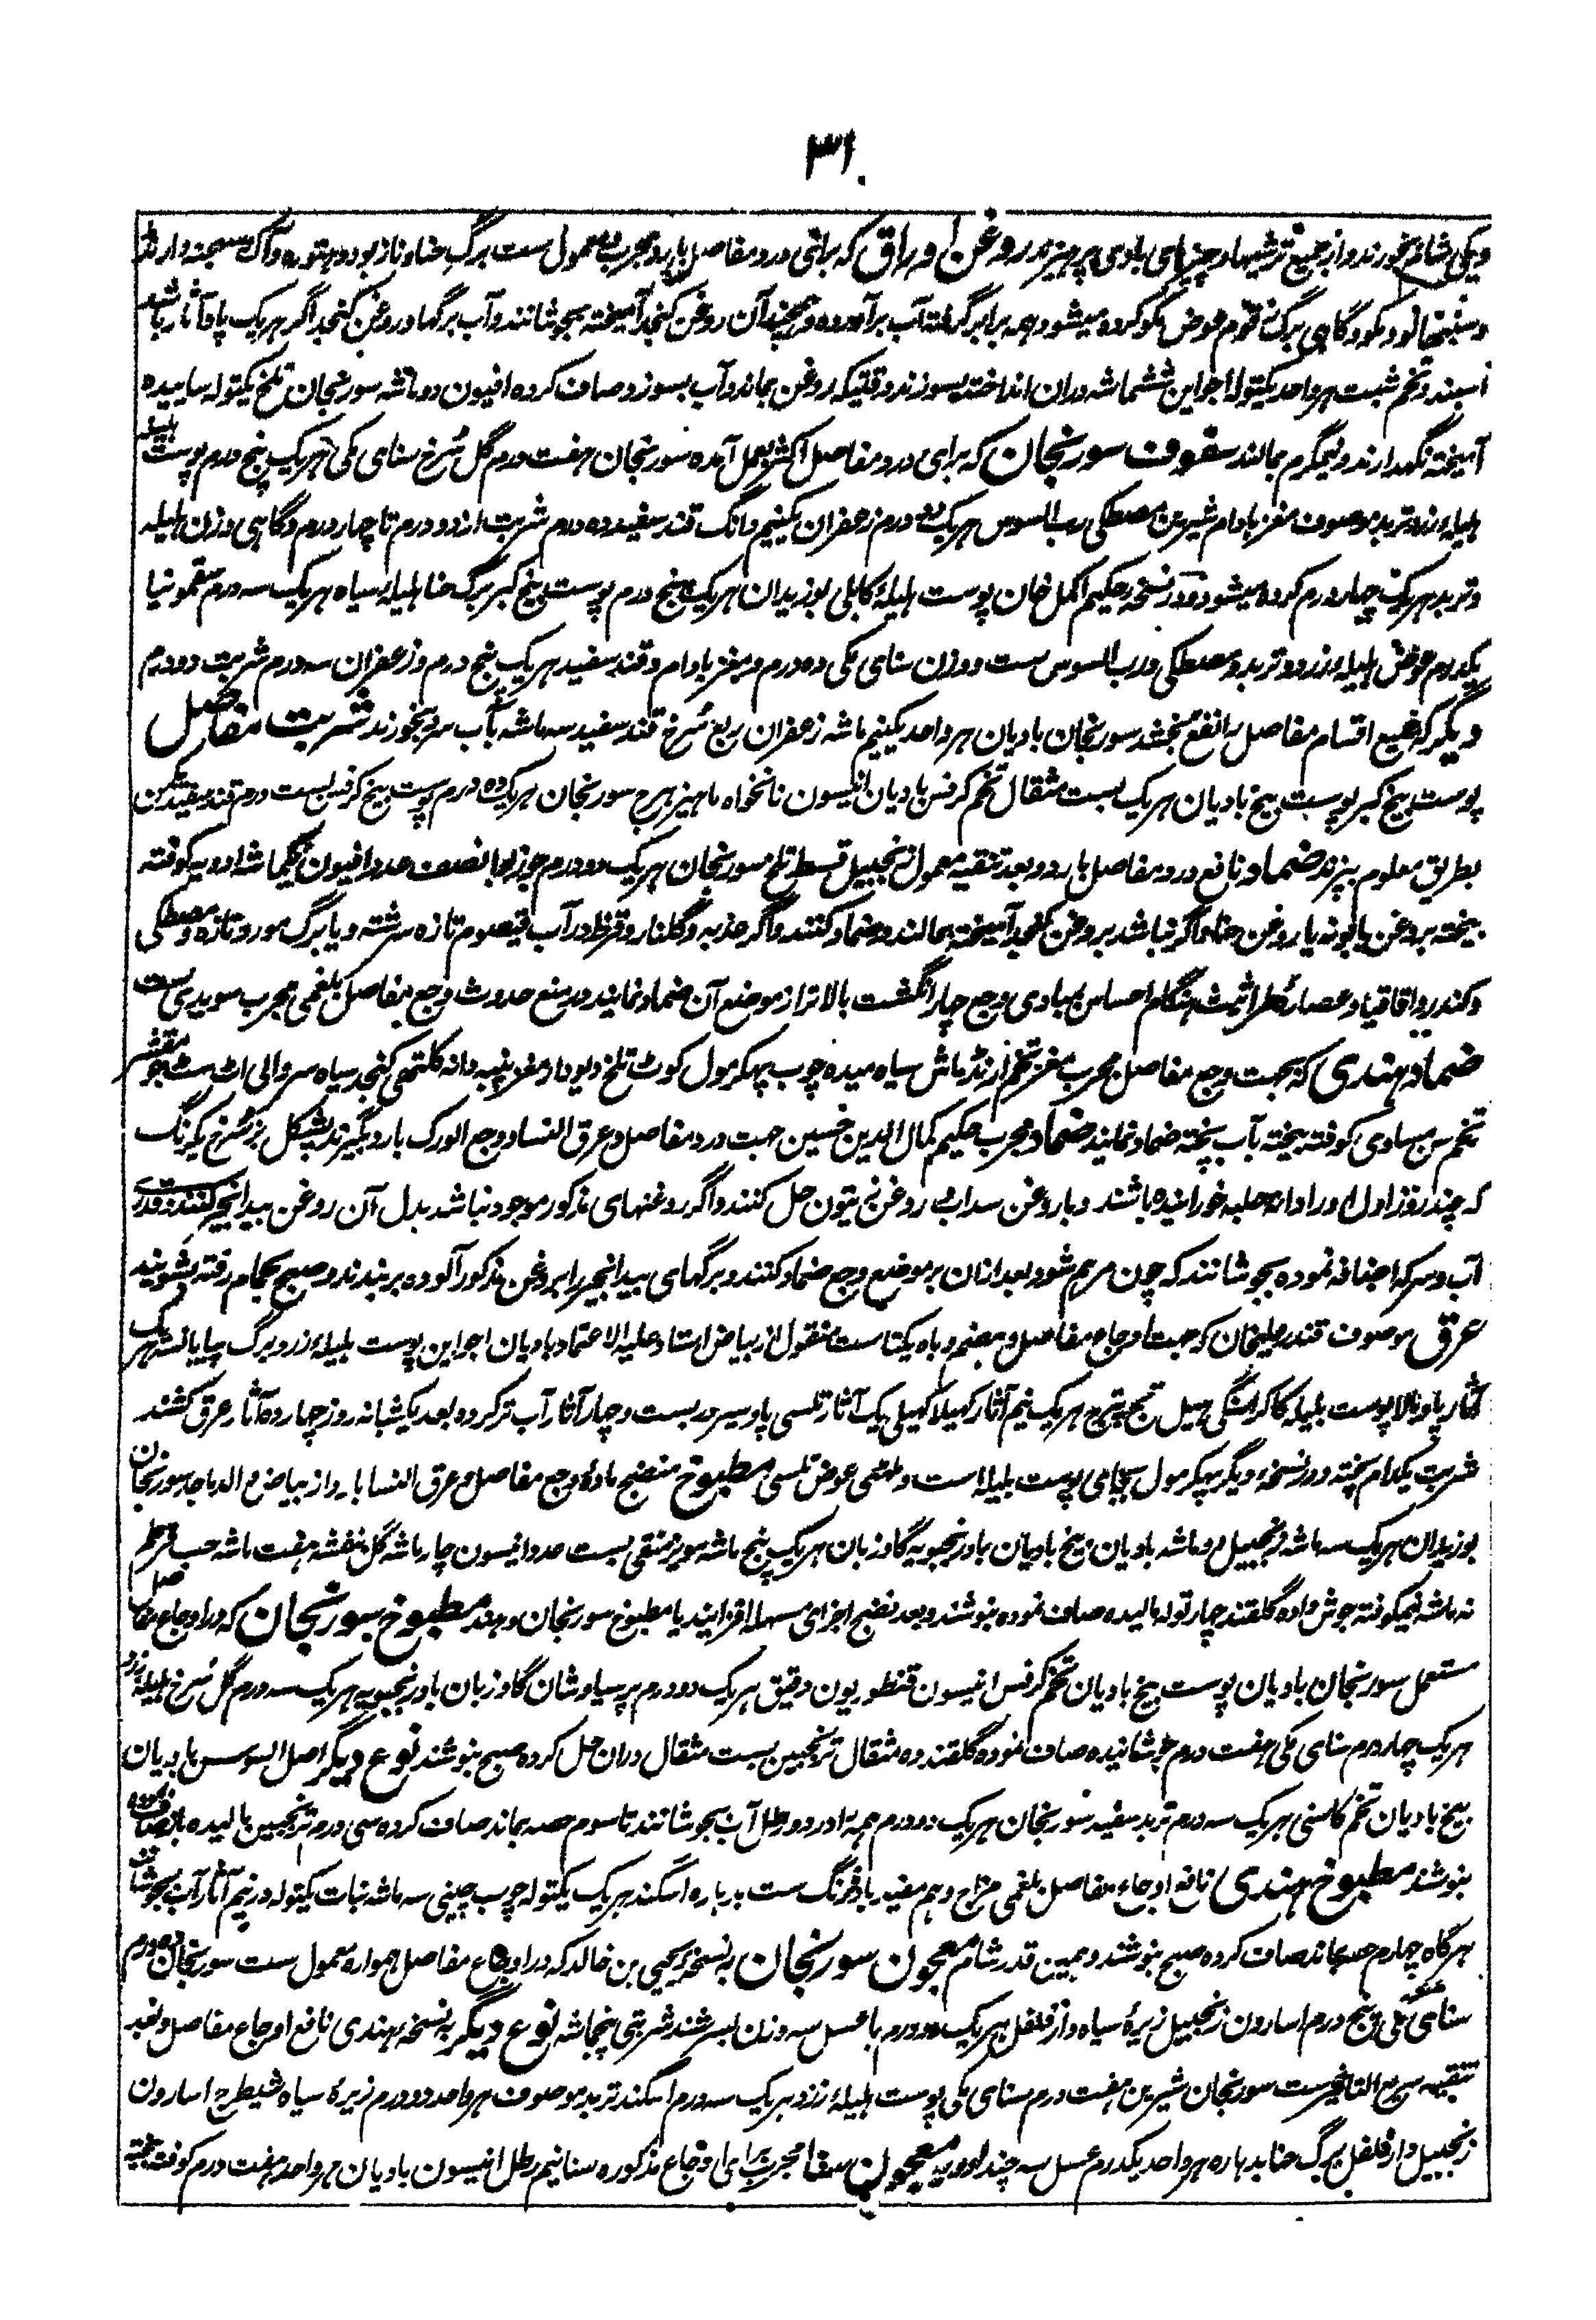 ۳۱۰
ویکی شام بخورند و از جمیع ترشیها و چیزهای بادی پرهیزند روغن اوراق که برای درد مفاصل بارد مجرب و معمول ست برگ حنا و نازبو و دهتوره و آک و سهجنه و ارنڈ
و سنبهالو و مکو و گاهی برگ زقوم عوض مکو کرده میشود همه برابر گرفته آب برآورده و همچند آن روغن کنجد آمیخته بجوشانند و آب برگها و روغن کنجد اگر هریک پاو آثار باشد
اسپند و تخم شبت هرواحد یکتوله اجواین ششماشه دران انداخته بسوزند وقتیکه روغن بماند و آب بسوزد صاف کرده افیون دو ماشه سورنجان تلخ یکتوله ساییده
آمیخته نگهدارند و نیمگرم بمالند سفوف سورنجان که برای درد مفاصل اکثر بعمل آمده سورنجان هفت درم گل سرخ سنای مکی هریک پنج درم پوست هلیله
هلیله زرد تربد موصوف مغز بادام شیرین مصطکی رب السوس هریک دو درم زعفران یکنیم دانگ قند سفید ده درم شربت از دو درم تا چهار درم و گاهی وزن هلیله
و تربد هریک چهار درم کرده میشود و در نسخه حکیم اکمل خان پوست هلیله کابلی بوزیدان هریک پنج درم پوست بیخ کبر برگ حنا هلیله سیاه هریک سه درم سقمونیا
یکدرم عوض هلیله زرد و تربد و مصطکی و رب السوس ست و وزن سنای مکی ده درم و مغز بادام و قند سفید هریک پنج درم و زعفران سه درم شربت دو درم
دیگر که جمیع اقسام مفاصل را نفع بخشد سورنجان بادیان هرواحد یکنیم ماشه زعفران ربع سرخ قند سفید سه ماشه بآب سرد بخورند شربت مفاصل
پوست بیخ کبر پوست بیخ بادیان هریک بست مثقال تخم کرفس بادیان انیسون نانخواه ماهیزهرج سورنجان هریک ده درم پوست بیخ کرفس بست درم قند سفید یکمن
بطریق معلوم بپزند ضماد نافع درد مفاصل بارد و بعد تنقیه معمول زنجبیل قسط تلخ سورنجان هریک دو درم جوزبوا نصف عدد افیون یکماشه ادویه کوفته
بیخته بروغن بابونه یا روغن حنا و اگر نباشد بروغن کنجد آمیخته بمالند و ضماد کنند و اگر جذبه و گلنار و قرظ در آب قیصوم تازه سرشته و یا برگ مورد تازه و مصطکی
و کندر و اقاقیا و عصاره طراثیث هنگام احساس بمبادی وجع چهار انگشت بالاتر از موضع آن ضماد نمایند در منع حدوث وجع مفاصل بلغمی مجرب سویدی ست
ضماد هندی که بجهت وجع مفاصل مجرب مغز تخم ارنڈ ماش سیاه میده چوب پهکرمول کوٹ تلخ دیودار مغز پنبه دانه کلتهی کنجد سیاه سروالی اٹ سٹ جو مقشر
تخم سن مساوی کوفته بیخته بآب پخته ضماد نمایند ضماد مجرب حکیم کمال الدین حسین جهت درد مفاصل و عرق النسا و وجع الورک بارد بگیرند پشکل بز سرخ یکرنگ
که چند روز اول او را دانه حلبه خورانیده باشند و با روغن سداب یا روغن زیتون حل کنند و اگر روغنهای مذکور موجود نباشد بدل آن روغن بیدانجیر کنند و قدری
آب و سرکه اضافه نموده بجوشانند که چون مرهم شود بعد ازان بر موضع وجع ضماد کنند و برگهای بیدانجیر را بروغن مذکور آلوده بر بندند و صبح بحمام رفته بشویند
عرق موصوف قندر علیخان که جهت اوجاع مفاصل و هضم و باه یکتاست منقول از بیاض استاد علیه الاعتماد بادیان اجواین پوست هلیله زرد برگ چایانسه هریک
آثار پاو بالا پوست بلیله کاکراسنگی هیل تج پترج هریک نیم آثار کهیلا کهیلی یک آثار تلسی پاو سیر در بست و چهار آثار آب تر کرده بعد یکشبانه روز چهارده آثار عرق کشند
شربت یکدام پخته و در نسخه دیگر پهکرمول بجای پوست بلیله است و ملهٹی عوض تلسی مطبوخ منضج ماده وجع مفاصل و عرق النسا بارد از بیاض والد ماجد سورنجان
بوزیدان هریک سه ماشه زنجبیل دو ماشه بادیان بیخ بادیان بادرنجبویه گاوزبان هریک پنج ماشه مویز منقی بست عدد انیسون چار ماشه گل بنفشه هفت ماشه حب قرطم
نه ماشه نیمکوفته جوش داده گلقند چار توله مالیده صاف نموده بنوشند و بعد نضج اجزای مسهله افزایند یا مطبوخ سورنجان دهند مطبوخ سورنجان که در اوجاع مفاصل
مستعمل سورنجان بادیان پوست بیخ بادیان تخم کرفس انیسون قنطوریون دقیق هریک دو درم پرسیاوشان گاوزبان بادرنجبویه هریک سه درم گل سرخ هلیله زرد
هریک چهار درم سنای مکی هفت درم جوشانیده صاف نموده گلقند ده مثقال ترنجبین بست مثقال دران حل کرده صبح بنوشند نوع دیگر اصل السوس بادیان
بیخ بادیان تخم کاسنی هریک سه درم تربد سفید سورنجان هریک دو درم همه را در دو رطل آب بجوشانند تا سوم حصه بماند صاف کرده سی درم ترنجبین مالیده باز صاف نموده
بنوشند مطبوخ هندی نافع اوجاع مفاصل بلغمی مزاج و هم مفید باد فرنگ ست بدهاره اسگند هریک یکتوله چوب چینی سه ماشه نبات یکتوله در نیم آثار آب بجوشانند
هرگاه چهارم حصه بماند صاف کرده صبح بنوشند و همین قدر شام معجون سورنجان به نسخه یحیی بن خالد که در اوجاع مفاصل همواره معمول ست سورنجان ده درم
سنای مکی پنج درم اسارون زنجبیل زیره سیاه دارفلفل هریک دو درم با عسل سه وزن بسرشند شربتی پنجماشه نوع دیگر به نسخه هندی نافع اوجاع مفاصل و بعد
تنقیه سریع التاثیر ست سورنجان شیرین هفت درم سنای مکی پوست هلیله زرد هریک سه درم اسگند تربد موصوف هرواحد دو درم زیره سیاه شیطرج اسارون
زنجبیل دارفلفل برگ حنا بدهاره هرواحد یکدرم عسل سه چند ادویه معجون سنا مجرب برای اوجاع مذکوره سنا نیم رطل انیسون بادیان هرواحد هفت درم کوفته بیخته